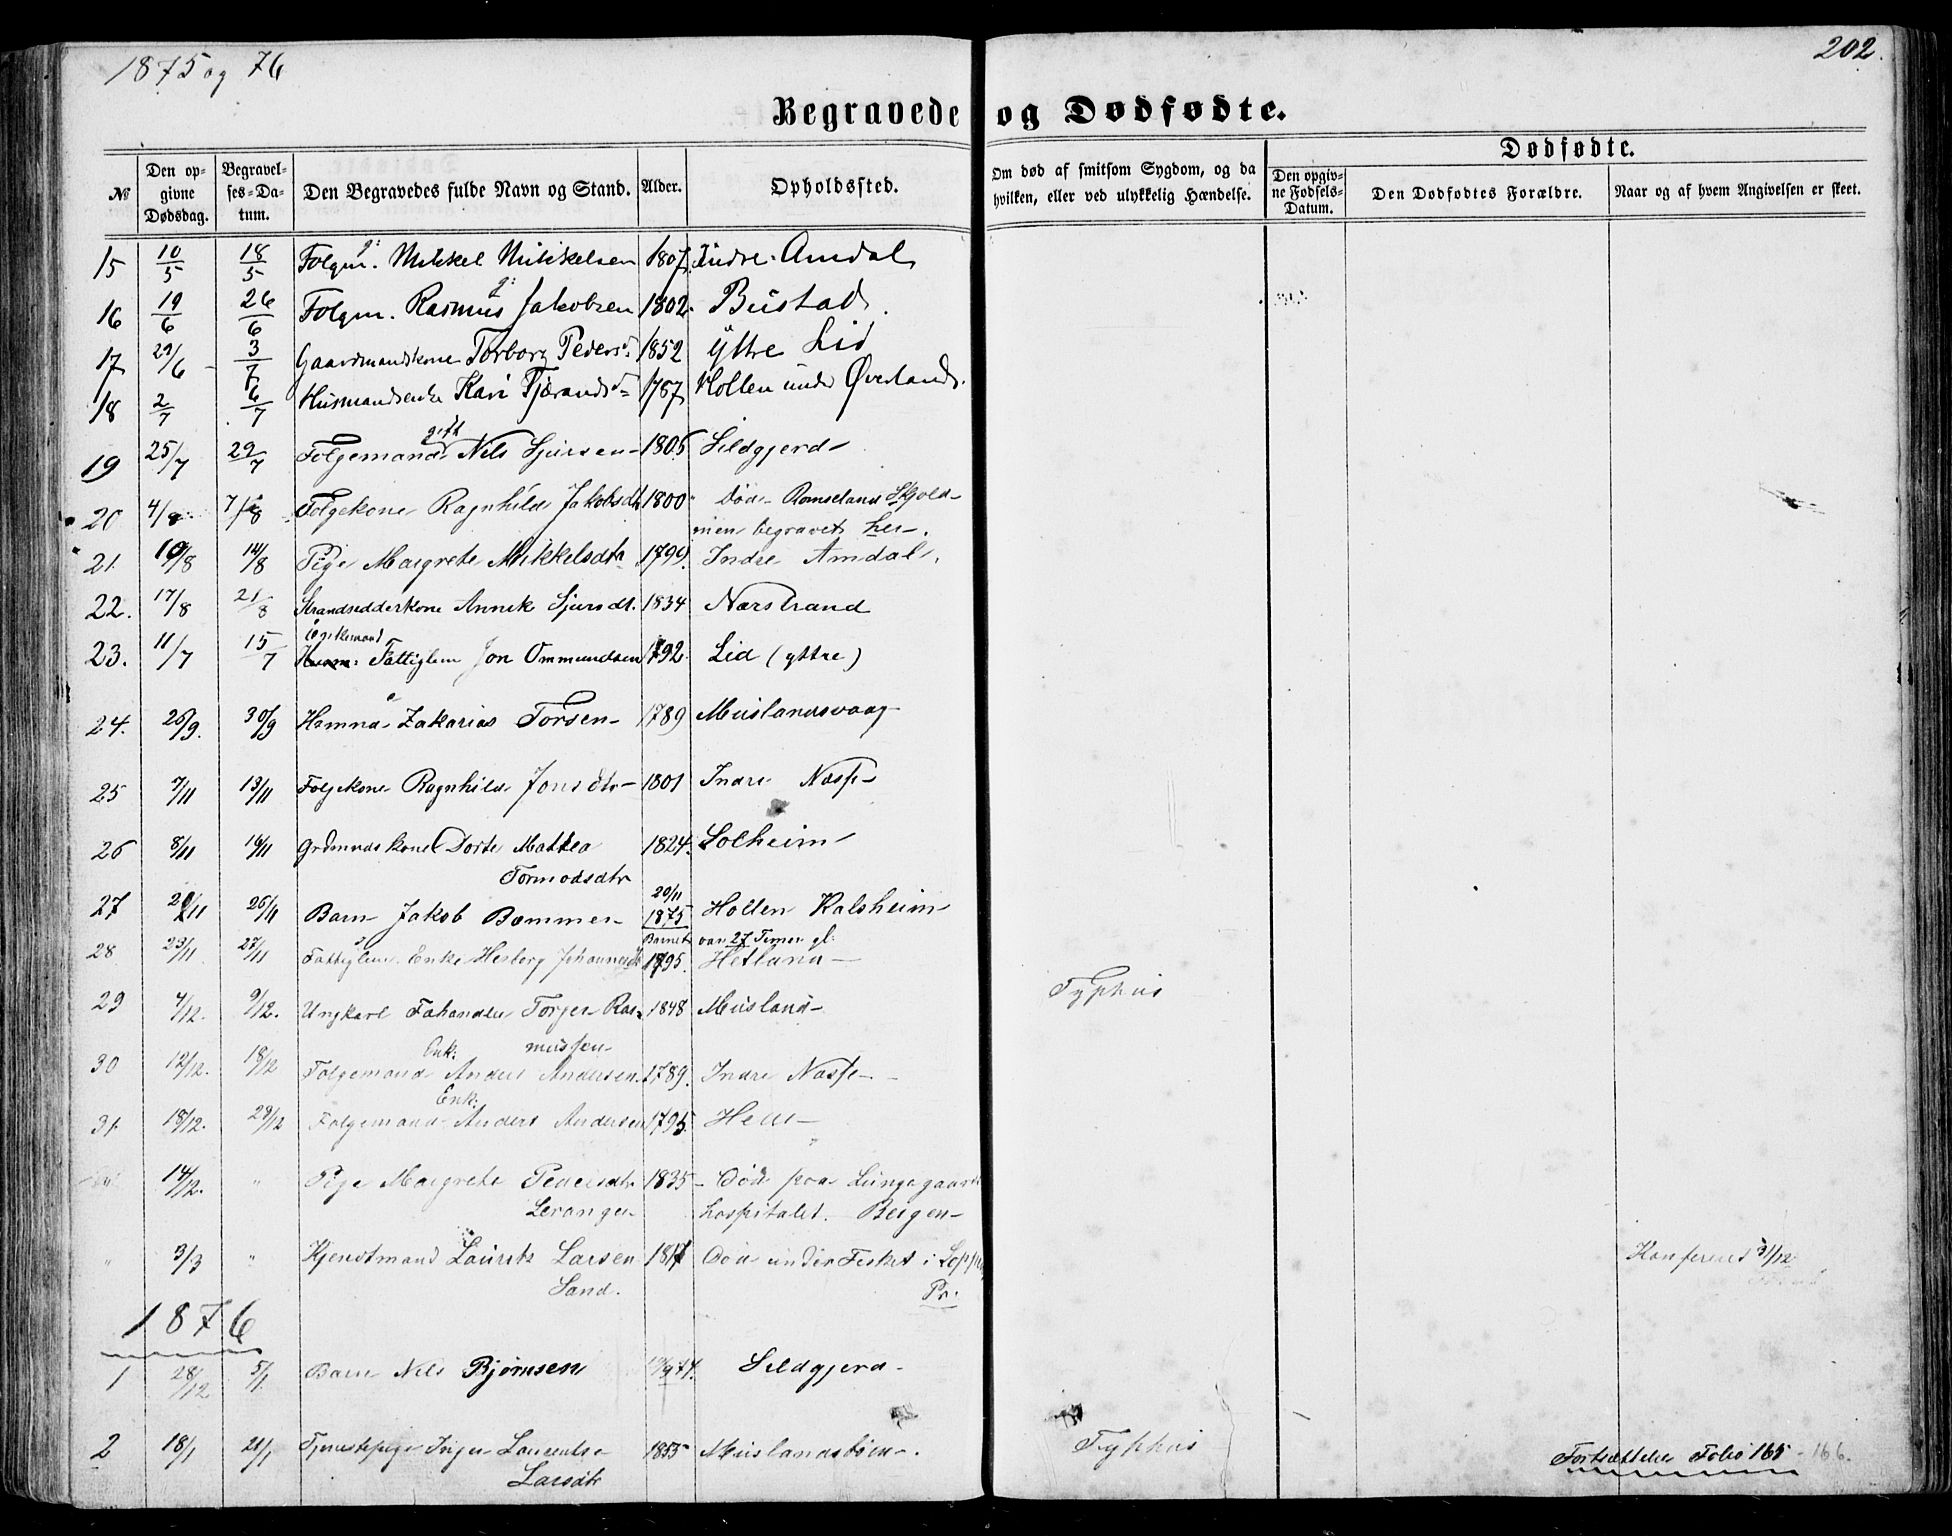 1875 og 76
202.
Begravede og Dødfødte.
№
Den opgivne Dødsdag.
Begravelses-Datum.
Den Begravedes fulde Navn og Stand.
Alder.
Opholdssted.
Om død af smitsom Sygdom, og da hvilken, eller ved ulykkelig Hændelse.
Dødfødte.
Den opgivne Fødsels-Datum.
Den Dødfødtes Forældre.
Naar og af hvem Angivelsen er skeet.
15 10/5 18/5 Folgm. g: Mikkel Mikkelsen 1807 Indre Amdal
16 19/6 26/6 Folgm. g: Rasmus Jakobsen 1802. Bustad
17 29/6 3/7 Gaardmandskone Torborg Pedersd: 1852 Yttre Lid
18 2/7 6/7 Husmandsenke Kari Tjærandsd= 1787 Holten under Øverland
19 25/7 29/7 Folgemand gift Nils Sjursen 1805 Sildgjerd
20 4/8 7/8 Folgekone Ragnhild Jakobsdtr 1800 Død Romseland Skjold
men begravet her.
21. 10/8 14/8 Pige Margrete Mikkelsdtr 1799. Indre Amdal.
22. 17/8 21/8 Strandsidderkone Annik Sjursdt. 1834 Nærstrand
23. 11/7 15/7 Fattiglem Jon Ommundsen 1792. Lid (yttre)
24. 26/9. 30/9 Zakarias Torsen 1789 Muslandsvaag
25 7/11 13/11 Folgekone Ragnhild Jonsdtr 1801 Indre Næsse
26 8/11 16/11 Grdmndskone Dorte Mattea 1824. Solheim
Tormodsdtr
20/11
27 26/11 Barn Jakob Bommen 1875 Holten Kalsheim
Barnet var 27 Timer gl:
28 23/11 27/11 Fattiglem Enke Hesborg Johannesdt 1795. Hetland
29 4/12. 9/12. Ungkarl Torger Ras= 1848 Musland Typhus
mussen
30 12/12. 18/12 Folgemand Enk: Anders Andersen 1789. Indre Næsse
31. 18/12. 29/12 Folgemand Enk: Anders Andersen 1795. Hem
14/12. " Pige Margrete Pedersdtr 1835 Død paa Lungegaards
Leranger hospitalet. Bergen
" 3/3 " Laurits Larsen 1817 Død under Fisket i
Sand. Pr.
Konfereret 31/12
1876
1 28/12 5/1. Barn Nils Bjørnsen Sildgjerd
2 18/1 21/1 Tjenestepige Inger Laurentse 1855 Muslandsbøen. Typhus
Larsdtr
Fortsættelse Folio 165 - 166.